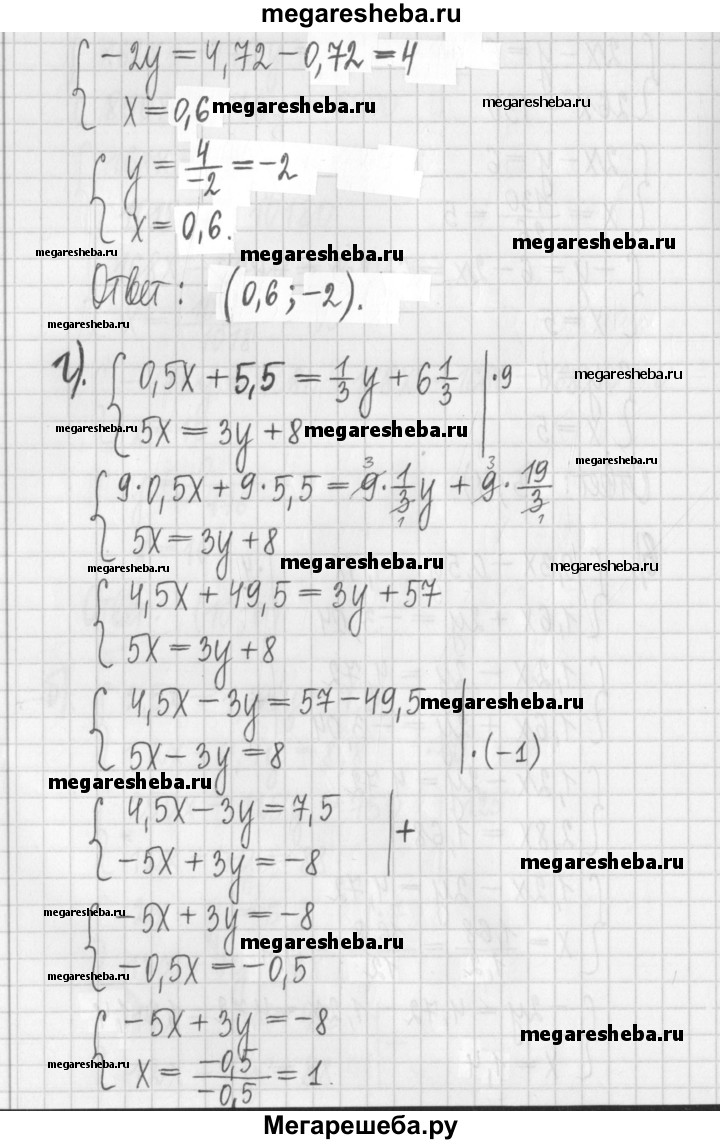 megaresheba.ru
{ -2y = 4,72 - 0,72 = 4
x = 0,6 megaresheba.ru megaresheba.ru
{ y = 4/-2 = -2
x = 0,6.
megaresheba.ru megaresheba.ru megaresheba.ru
Ответ: (0,6; -2).
megaresheba.ru
г). { 0,5x + 5,5 = 1/3 y + 6 1/3 | · 9
megaresheba.ru
5x = 3y + 8 megaresheba.ru megaresheba.ru
megaresheba.ru
{ 9 · 0,5x + 9 · 5,5 = 9 3 · 1/3 1 y + 9 3 · 19/3 1
5x = 3y + 8
megaresheba.ru megaresheba.ru megaresheba.ru
{ 4,5x + 49,5 = 3y + 57
5x = 3y + 8
{ 4,5x - 3y = 57 - 49,5 megaresheba.ru
5x - 3y = 8 | · (-1)
megaresheba.ru
{ 4,5x - 3y = 7,5 | +
-5x + 3y = -8 megaresheba.ru
megaresheba.ru
{ -5x + 3y = -8
megaresheba.ru
megaresheba.ru
-0,5x = -0,5
{ -5x + 3y = -8 megaresheba.ru
megaresheba.ru
x = -0,5/-0,5 = 1.
Мегарешеба.ру